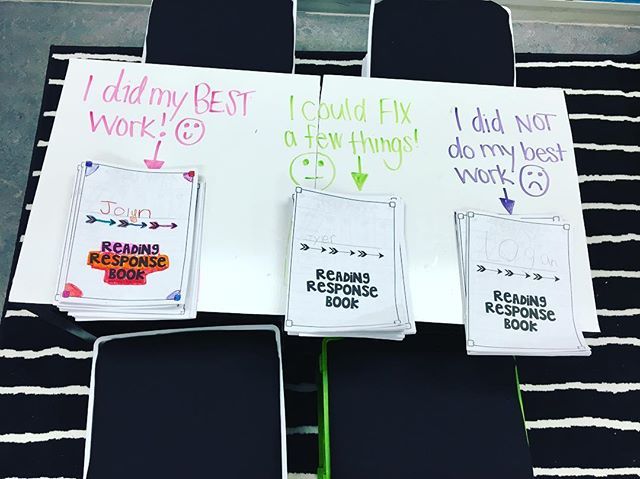 I did my BEST
work!
I could FIX
a few things!
I did NOT
do my best
work
READING
RESPONSE
BOOK
READING
RESPONSE
BOOK
Logan
READING
RESPONSE
BOOK